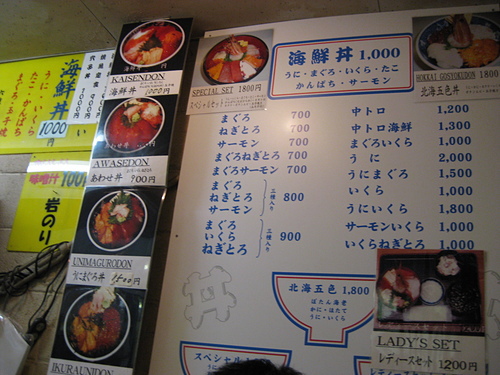 海鮮丼
1000円
うに・いくら
たこ・かんぱち
まぐろ・玉子焼
味噌汁 100円
岩のり
KAISENDON
海鮮丼 1000円
AWASEDON
あわせ丼 900円
UNIMAGURODON
うにまぐろ丼
IKURAUNIDON
SPECIAL SET 1800円
スペシャルセット
海鮮丼 1,000
うに・まぐろ・いくら・たこ
かんぱち・サーモン
HOKKAI GOSYOKUDON 1800円
北海五色丼
まぐろ 700
ねぎとろ 700
サーモン 700
まぐろねぎとろ 700
まぐろサーモン 700
まぐろ
ねぎとろ
サーモン
三種入り 800
まぐろ
いくら
ねぎとろ
三種入り 900
中トロ 1,200
中トロ海鮮 1,300
まぐろいくら 1,000
うに 2,000
うにまぐろ 1,500
いくら 1,000
うにいくら 1,800
サーモンいくら 1,000
いくらねぎとろ 1,000
丼
北海五色 1,800
ぼたん海老
かに・ほたて
うに・いくら
スペシャル
LADY'S SET
レディースセット 1200円